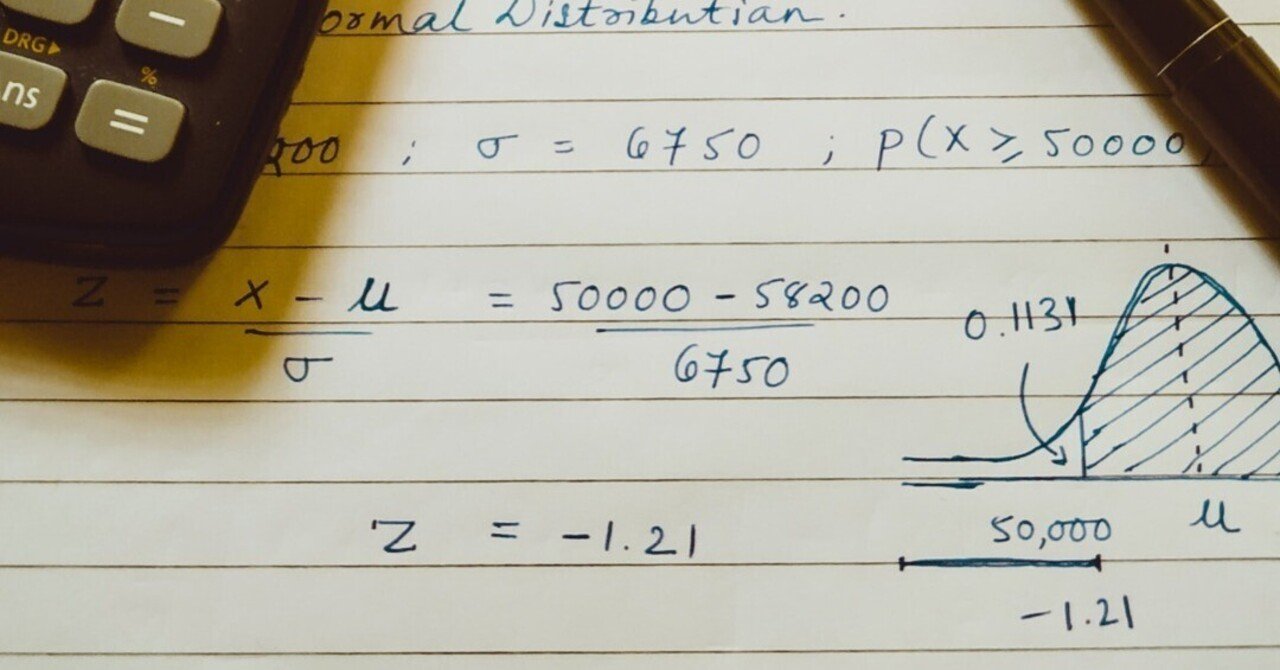 DRG▶
−
ns
%
=
ormal Distribution.
200 ; σ = 6750 ; P(X ≥ 50000
Z = x − μ = 50000 − 58200
σ 6750
0.1131
Z = −1.21
50,000 μ
−1.21